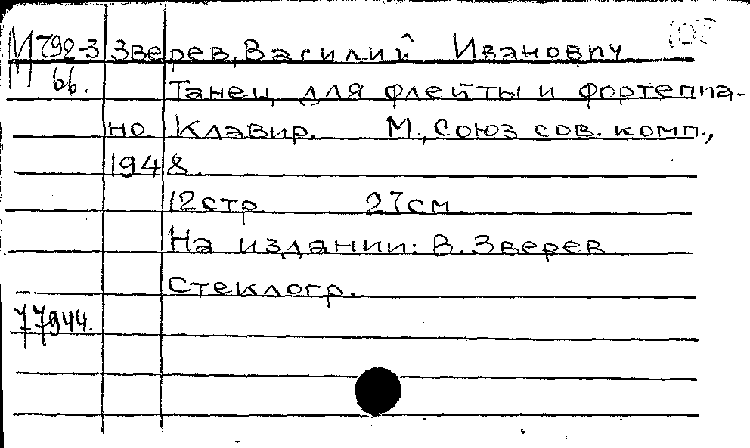 М 792-3 Зверев, Василий Иванович
66. Танец для флейты и фортепиа-
но. Клавир. М., Союз сов. комп.,
1948.
12стр. 27см
На издании: В. Зверев
Стеклогр.
77944.